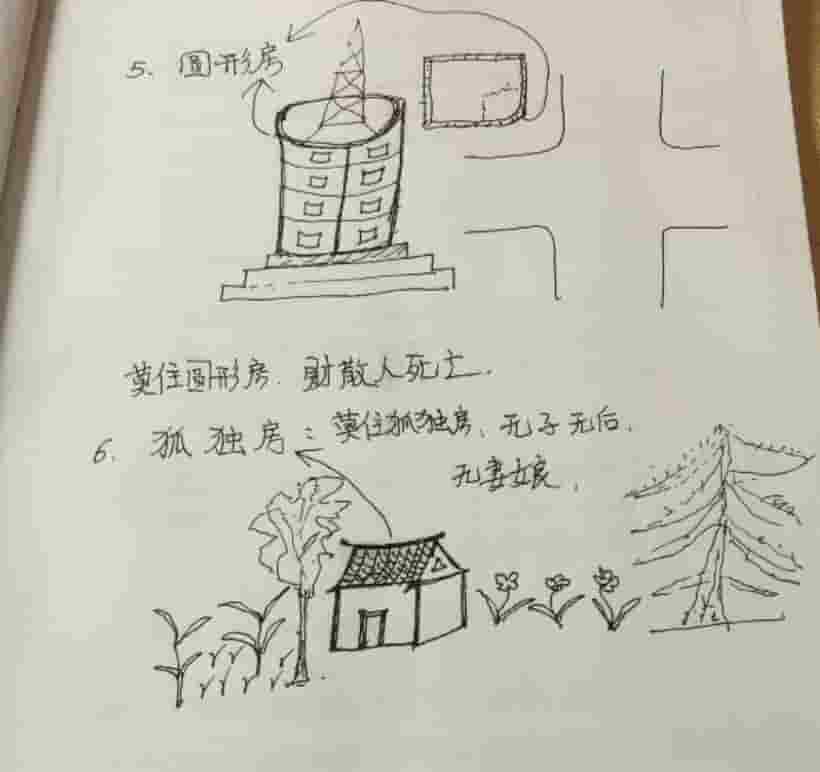 5. 圆形房
莫住圆形房. 财散人死亡.
6. 孤独房: 莫住孤独房、无子无后.
无妻娘.